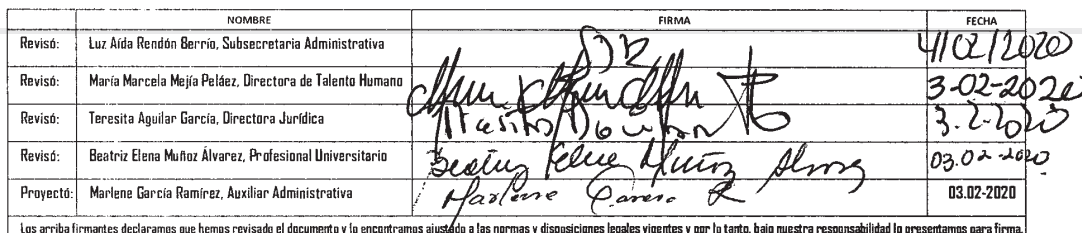 NOMBRE FIRMA FECHA
Revisó: Luz Aída Rendón Berrío, Subsecretaria Administrativa 4/02/2020
Revisó: María Marcela Mejía Peláez, Directora de Talento Humano 3-02-2020
Revisó: Teresita Aguilar García, Directora Jurídica Teresita Aguilar 3.2-2020
Revisó: Beatriz Elena Muñoz Álvarez, Profesional Universitario Beatriz Elena Muñoz Alvarez 03.02-2020
Proyectó: Marlene García Ramírez, Auxiliar Administrativa Marlene García R 03.02-2020
Los arriba firmantes declaramos que hemos revisado el documento y lo encontramos ajustado a las normas y disposiciones legales vigentes y por lo tanto, bajo nuestra responsabilidad lo presentamos para firma.